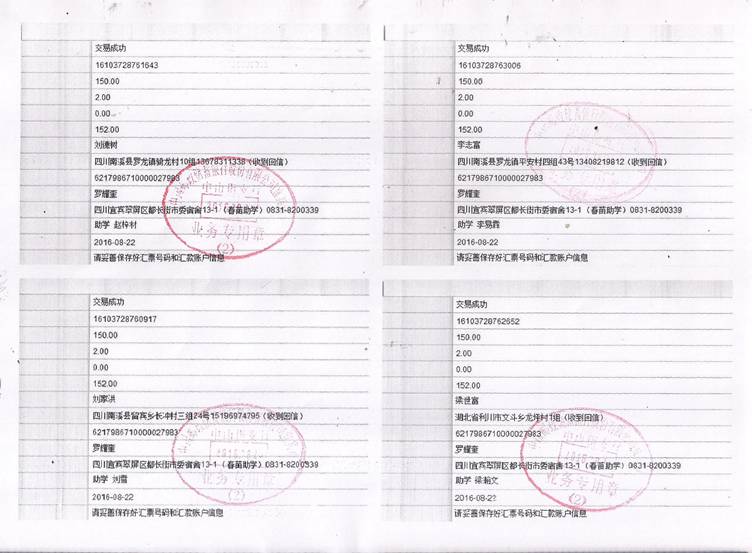 交易成功
16103728761643
150.00
2.00
0.00
152.00
四川南溪县罗龙镇骑龙村10组13678311338（收到回信）
6217986710000027983
罗耀奎
四川宜宾翠屏区都长街市委宿舍13-1（春苗助学）0831-8200339
助学 赵梓材
2016-08-22
请妥善保存好汇票号码和汇款账户信息
业务专用章
(2)
交易成功
16103728763006
150.00
2.00
0.00
152.00
李志富
四川南溪县罗龙镇平安村四组43号13408219812（收到回信）
6217986710000027983
罗耀奎
四川宜宾翠屏区都长街市委宿舍13-1（春苗助学）0831-8200339
助学 李易霖
2016-08-22
请妥善保存好汇票号码和汇款账户信息
交易成功
16103728760917
150.00
2.00
0.00
152.00
刘家洪
四川南溪县留宾乡长冲村三组24号15196974795（收到回信）
6217986710000027983
罗耀奎
四川宜宾翠屏区都长街市委宿舍13-1（春苗助学）0831-8200339
助学 刘雪
2016-08-22
请妥善保存好汇票号码和汇款账户信息
业务专用章
(2)
交易成功
16103728762652
150.00
2.00
0.00
152.00
梁世富
湖北省利川市文斗乡龙坪村1组（收到回信）
6217986710000027983
罗耀奎
四川宜宾翠屏区都长街市委宿舍13-1（春苗助学）0831-8200339
助学 梁瀚文
2016-08-22
请妥善保存好汇票号码和汇款账户信息
业务专用章
(2)